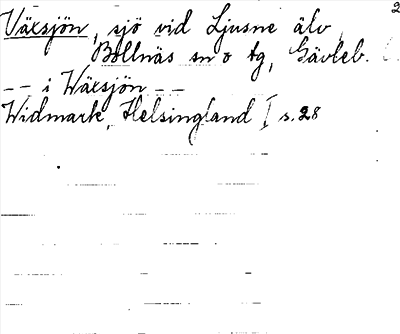 Växsjön, sjö vid Ljusne älv
Bollnäs sn o tg, Gävleb.
-- i Wäxsjön --
Widmark, Helsingland I s. 28
2